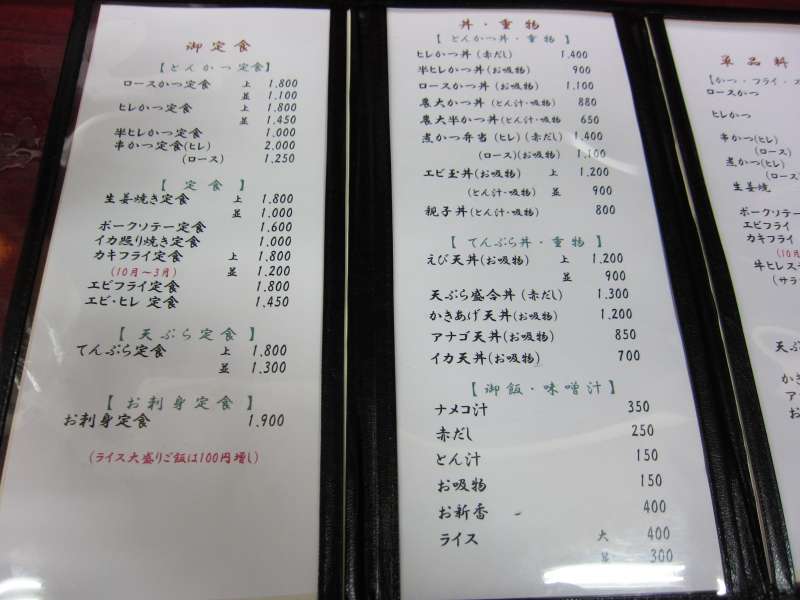 御定食
【とんかつ定食】
ロースかつ定食 上 1.800
並 1.100
ヒレかつ定食 上 1.800
並 1.450
半ヒレかつ定食 1.000
串かつ定食(ヒレ) 2.000
(ロース) 1.250
【 定 食 】
生姜焼き定食 上 1.800
並 1.000
ポークソテー定食 1.600
イカ照り焼き定食 1.000
カキフライ定食 上 1.800
(10月～3月) 並 1.200
エビフライ定食 1.800
エビ・ヒレ 定食 1.450
【 天ぷら定食 】
てんぷら定食 上 1.800
並 1.300
【 お刺身定食 】
お刺身定食 1.900
(ライス大盛りご飯は100円増し)
丼・重物
【 とんかつ丼・重物 】
ヒレかつ丼 (赤だし) 1.400
半ヒレかつ丼(お吸物) 900
ロースかつ丼(お吸物) 1.100
農大かつ丼 (とん汁・吸物) 880
農大半かつ丼(とん汁・吸物) 650
煮かつ弁当 (ヒレ)(赤だし) 1.400
(ロース)(お吸物) 1.100
エビ玉丼(お吸物) 上 1.200
(とん汁・吸物) 並 900
親子丼(とん汁・吸物) 800
【 てんぷら丼・重物 】
えび天丼(お吸物) 上 1.200
並 900
天ぷら盛合丼 (赤だし) 1.300
かきあげ天丼(お吸物) 1.200
アナゴ天丼(お吸物) 850
イカ天丼(お吸物) 700
【 御飯・味噌汁 】
ナメコ汁 350
赤だし 250
とん汁 150
お吸物 150
お新香 400
ライス 大 400
並 300
単品料
【かつ・フライ・
ロースかつ
ヒレかつ
串かつ(ヒレ)
(ロース)
煮かつ(ヒレ)
(ロース
生姜焼
ポークソテ
エビフライ
カキフライ
(10月
牛ヒレステ
(サラ
天ぷ
かき
アナ
お